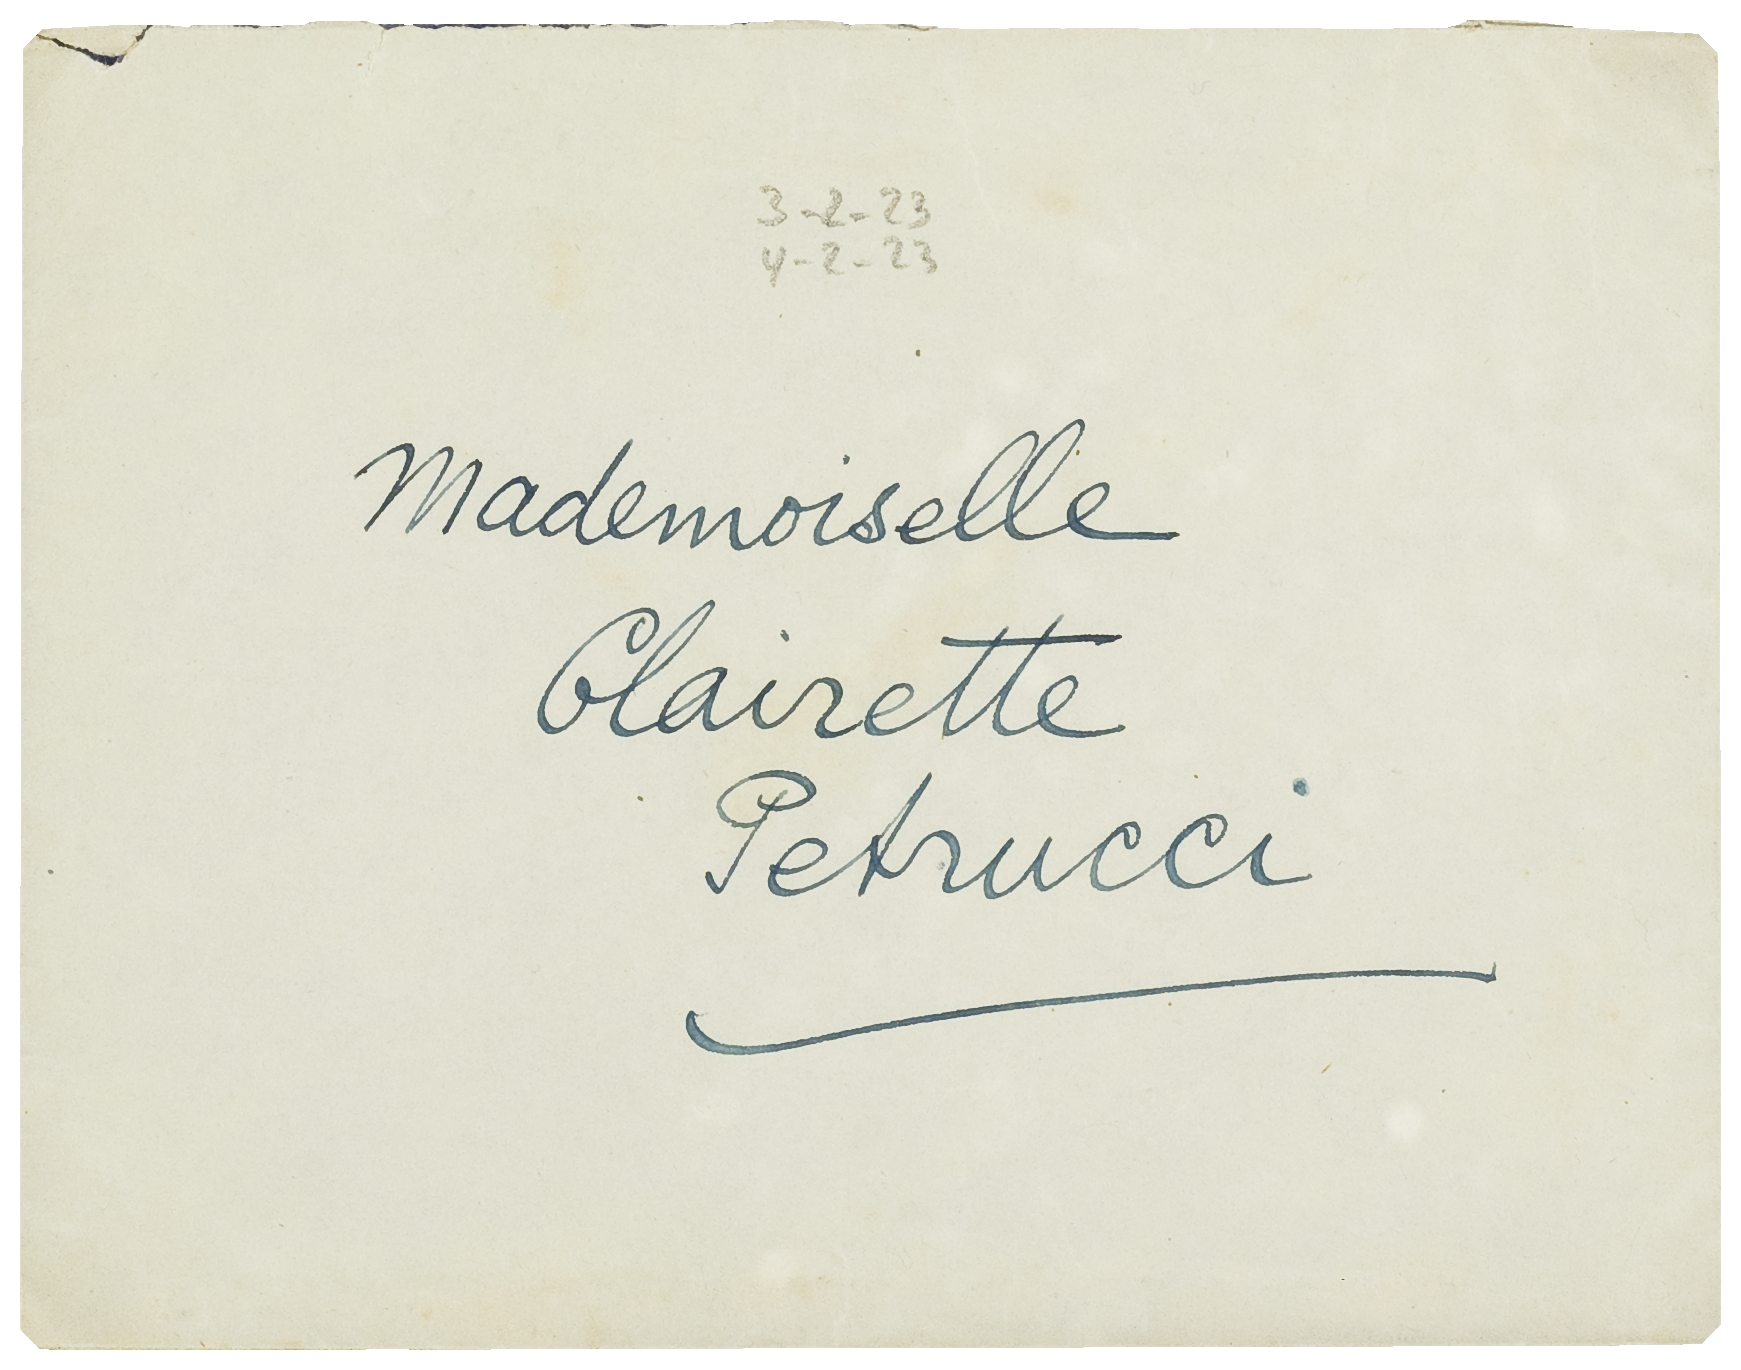 3-2-23
4-2-23
Mademoiselle
Clairette
Petrucci